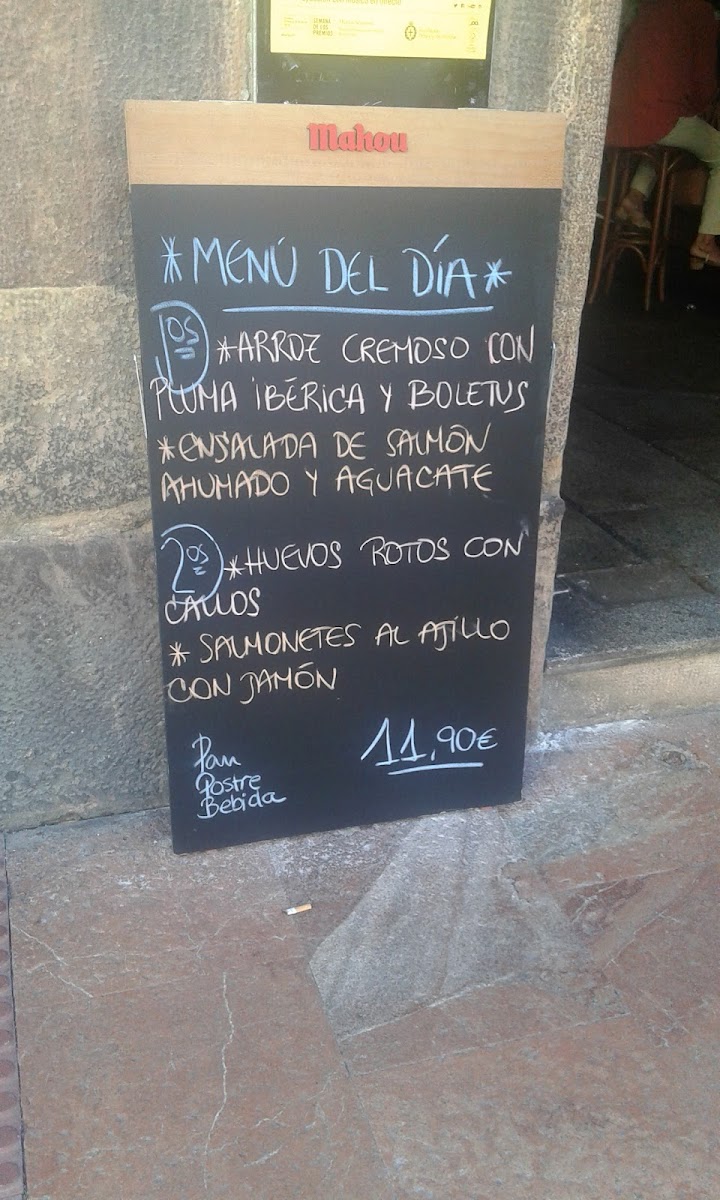 SEMANA
DE LOS
PREMIOS
Mahou
*MENÚ DEL DÍA*
1os *ARROZ CREMOSO CON
PLUMA IBÉRICA Y BOLETUS
*ENSALADA DE SALMÓN
AHUMADO Y AGUACATE
2os *HUEVOS ROTOS CON
CALLOS
* SALMONETES AL AJILLO
CON JAMÓN
Pan
Postre
Bebida
11,90€